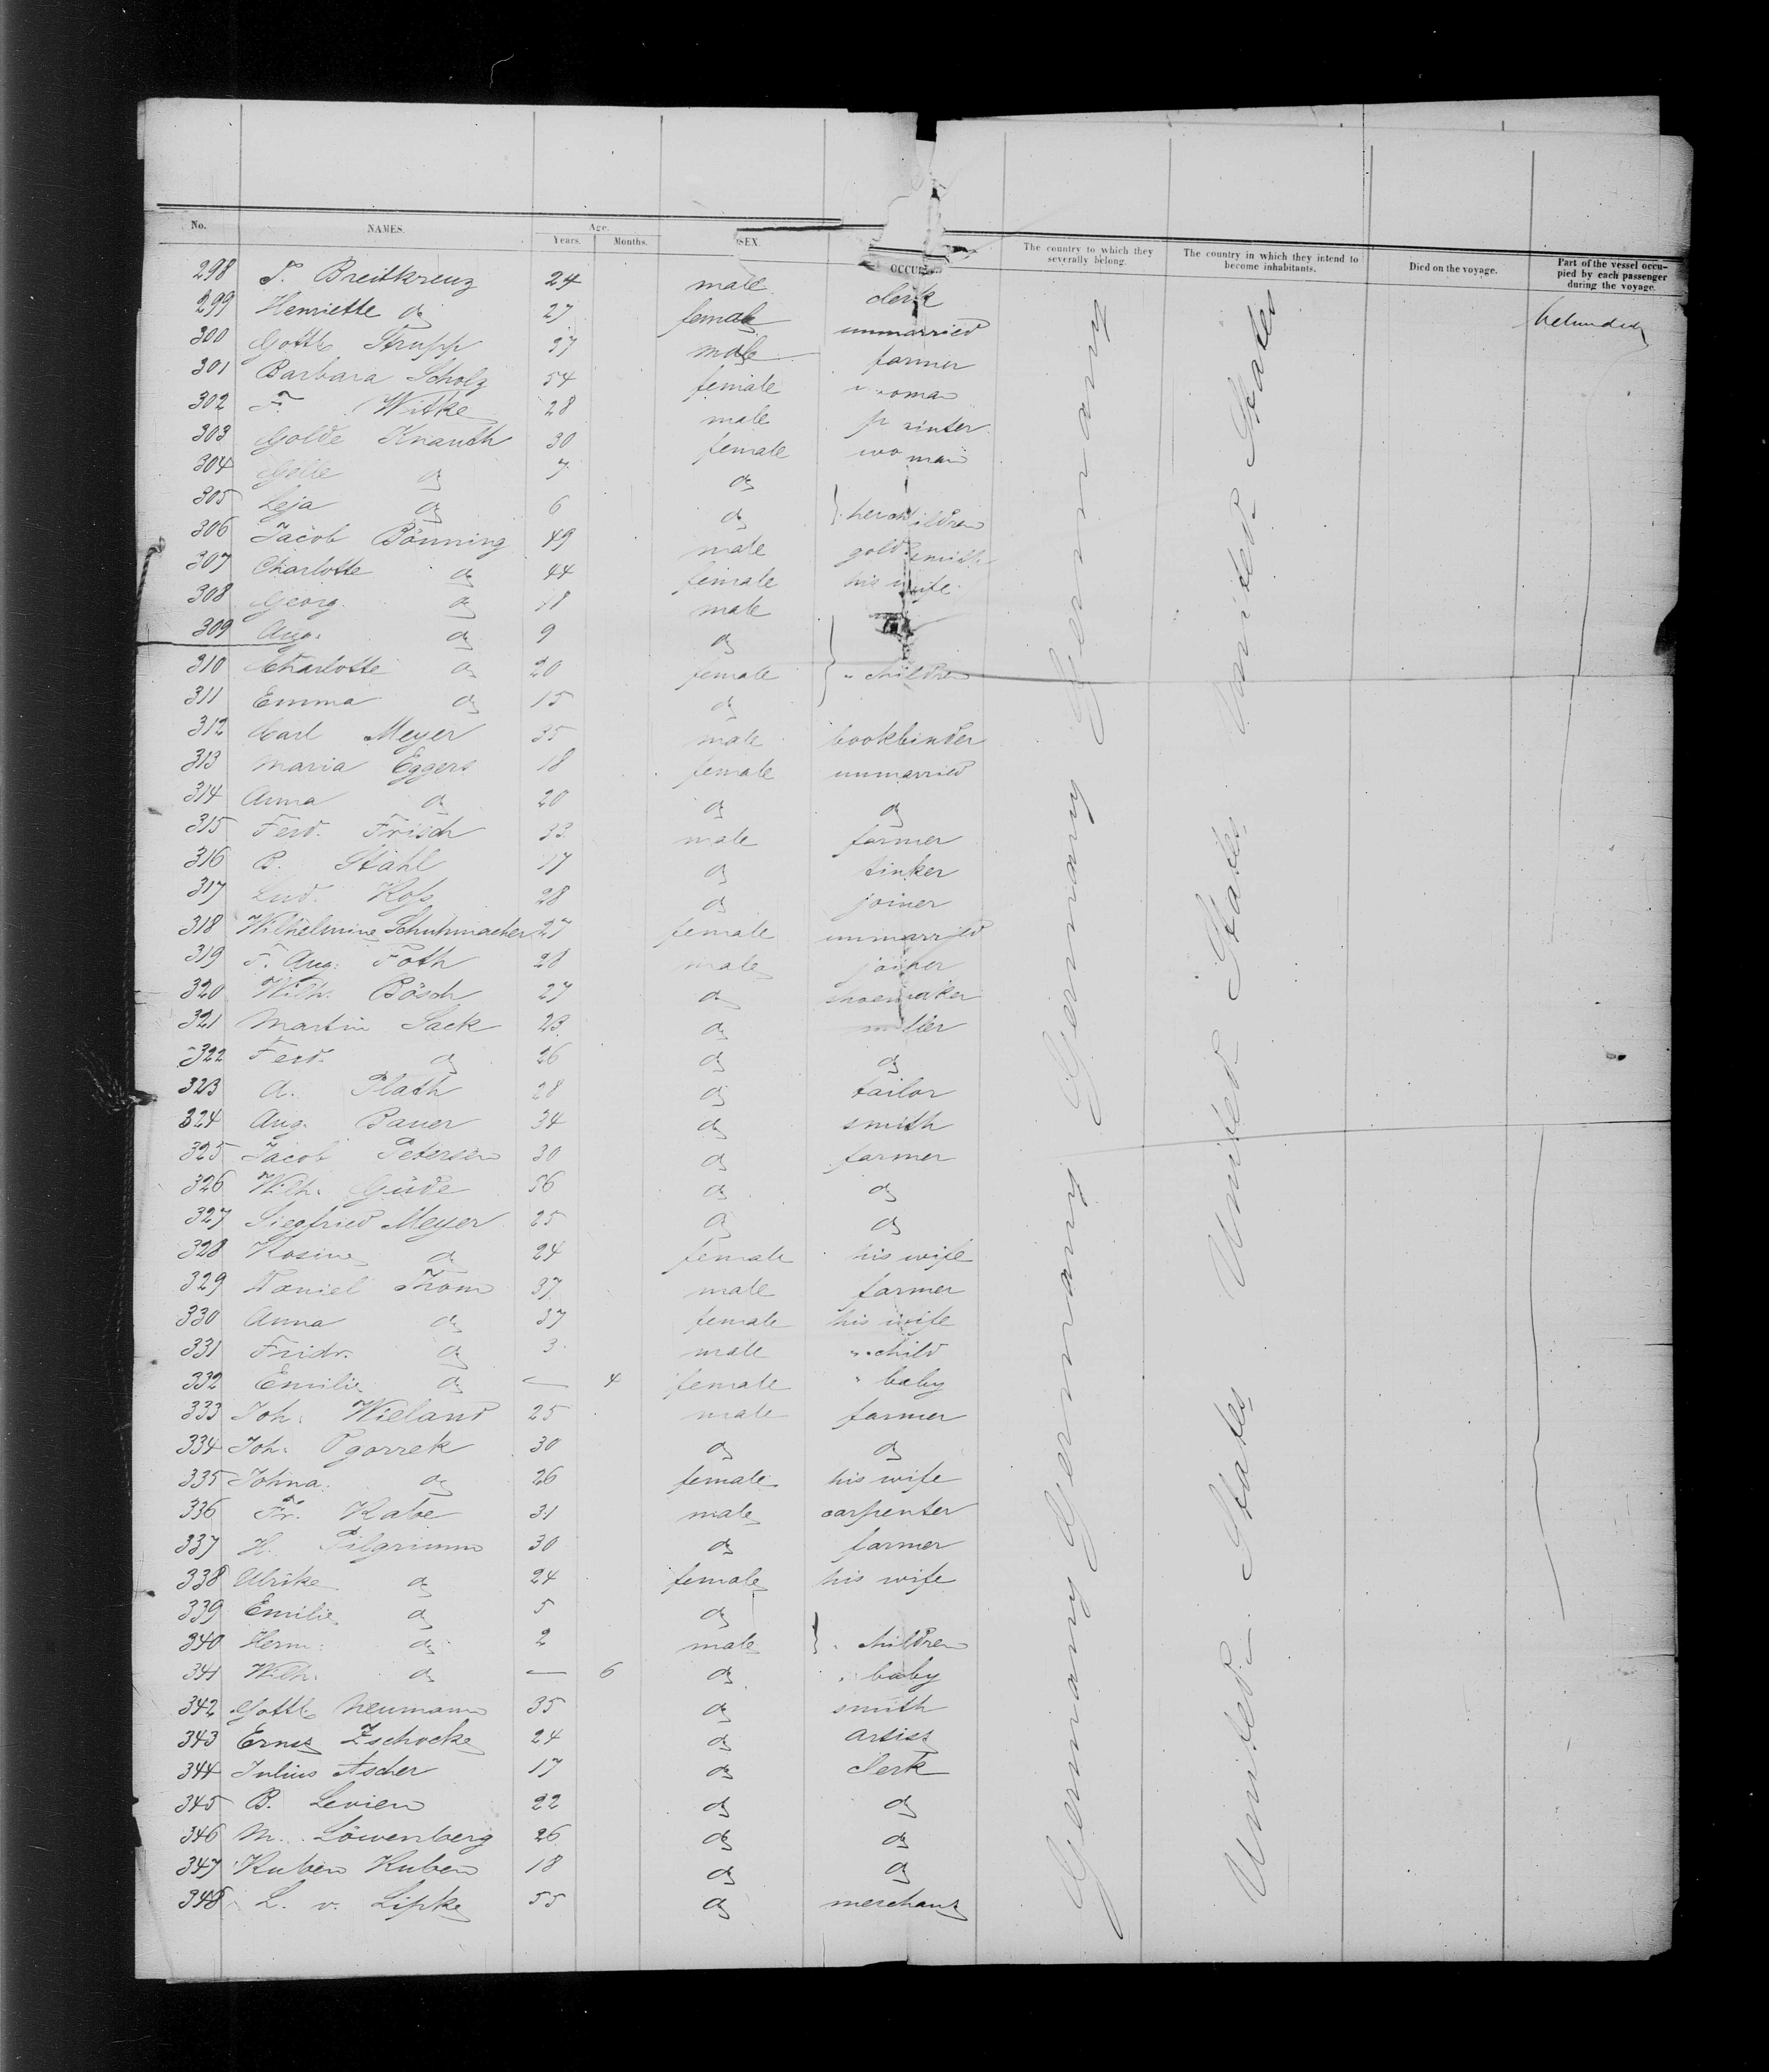 No. NAMES. Age. Years. Months. SEX. OCCU The country to which they severally belong. The country in which they intend to become inhabitants. Died on the voyage. Part of the vessel occupied by each passenger during the voyage.
298 Breitkreuz 24 male clerk
299 Henriette do 27 female unmarried
300 Gottl. Strupp male farmer
301 Barbara Scholz 54 female woman
302 F. Witke 28 male printer
303 Golde Knauth 30 female woman
304 do 7 do
305 Leja do 6 do } her children
306 Jacob Bönning 49 male goldsmith
307 Charlotte do 44 female his wife
308 Georg do 18 male
309 Aug. do 9 do
310 Charlotte do 20 female } " children
311 Emma do 15 do
312 Carl Meyer 35 male bookbinder
313 Maria Eggers 18 female unmarried
314 Anna do 20 do do
315 Ferd. Frisch 33 male farmer
316 B. Stahl 17 do tinker
317 Lud. 28 do joiner
318 Wilhelmine Schuhmacher 27 female unmarried
319 F. Aug. Foth 28 male joiner
320 Wilh. Bösch 27 do shoemaker
321 Martin Sack 23 do miller
322 Ferd. do 26 do do
323 A. Plath 28 do tailor
324 Aug. Bauer 34 do smith
325 Jacob Petersen 30 do farmer
326 Wilh. Güde 56 do do
327 Siegfried Meyer 25 do do
328 Rosine do 24 female his wife
329 Daniel Thom 37 male farmer
330 Anna do 37 female his wife
331 Fridr. do 3 male " child
332 Emilie do — 4 female " baby
333 Joh. Wieland 25 male farmer
334 Joh. Ogorrek 30 do do
335 Johna. do 26 female his wife
336 Fr. Rabe 31 male carpenter
337 H. Pilgrimm 30 do farmer
338 Ulrike do 24 female his wife
339 Emilie do 5 do
340 Herm. do 2 male } " children
341 Wilh. do — 6 do " baby
342 Gottl. Neumann 35 do smith
343 Ernst Zschocke 24 do artist
344 Julius Ascher 17 do clerk
345 B. Levien 22 do do
346 M. Löwenberg 26 do do
347 Ruben Ruben 18 do do
348 L. v. Lipke 55 do merchant
Germany Germany Germany Germany Germany
United States United States United States